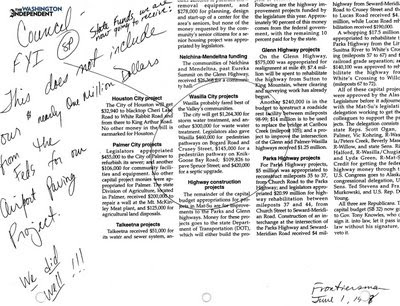 WASHINGTON
INDEPENDENT
Council
FYI
State funds we are
now going to receive!
This does include
over & nearly one million dollars
from the Fed
Capital
Projects
We did
well!!!
Houston City project
The City of Houston will get
$32,940 to blacktop Cheri Lake
Drive to White Rabbit Road and
from there to King Arthur Road.
No other money in the bill is
earmarked for Houston.
Palmer City projects
Legislators appropriated
$455,000 to the City of Palmer to
refurbish its sewer; and another
$106,000 for community facili-
ties and equipment. No other
capital project monies were ap-
propriated for Palmer. The state
Division of Agriculture, located
in Palmer, received $200,000 to
repair a wall at the Mt. McKin-
ley Meat plant, and $125,000 for
agricultural land disposals.
Talkeetna projects
Talkeetna received $51,000 for
its water and sewer system, as-
removal equipment, and
$278,000 for planning, design
and start-up of a center for the
area's seniors, but none of the
money requested by the com-
munity's senior citizens for a se-
nior housing project was appro-
priated by legislators.
Nelchina-Mendeltna funding
The communities of Nelchina
and Mendeltna, past Eureka
Summit on the Glenn Highway,
received $26,368 for a commun-
ity hall.
Wasilla City projects
Wasilla probably fared best of
the Valley's communities.
The city will get $1,264,300 for
area water treatment, and an-
other $300,000 for waste water
treatment. Legislators also gave
Wasilla $460,000 for pedestrian
pathways on Bogard Road and
Crusey Street, $145,000 for a
pedestrian pathway on Knik-
Goose Bay Road; $109,826 to
pave Lucas Street; and $420,000
for a septic upgrade.
Highway construction
projects
The remainder of the capital
budget appropriations for pro-
jects in Mat-Su are for improve-
ments to the Parks and Glenn
Highways. Money for these pro-
jects goes to the state Depart-
ment of Transportation (DOT),
which will either build the pro-
Following are the highway im-
provement projects funded by
the legislature this year. Approx-
imately 90 percent of this money
comes from the federal govern-
ment, with the remaining 10
percent paid by the state.
Glenn Highway projects
On the Glenn Highway,
$575,000 was appropriated for
realignment at mile 49; $7.4 mil-
lion will be spent to rehabilitate
the highway from Sutton to
King Mountain, where clearing
and surveying work has already
begun.
Another $240,000 is in the
budget to construct a roadside
rest facility between mileposts
98-99; $14 million is to be used
to replace the bridge at Caribou
Creek (milepost 105); and a pro-
ject to improve the intersection
of the Glenn and Palmer-Wasilla
highways received $1.25 million.
Parks Highway projects
For Parks Highway projects,
$5 million was appropriated to
reconstruct mileposts 35 to 37,
from Church Road to the Parks
Highway; and legislators appro-
priated $20.99 million for high-
way rehabilitation between
mileposts 37 and 44, from
Church Street to Seward-Meridi-
an Road. Construction of an in-
terchange at the intersection of
the Parks Highway and Seward-
Meridian Road received $4 mil-
highway from Seward-Meridi-
Road to Crusey Street; and the
to Lucas Road received $4.
million, while Lucas Road reha-
bilitation received $190,000.
A whopping $17.5 million
appropriated to rehabilitate t
Parks Highway from the Litt
Susitna River to White's Cros
ing (mileposts 57 to 67) and f
railroad grade separation; an
$140,100 was approved to re-
habilitate the highway fro
White's Crossing to Willo
(mileposts 67 to 72).
All of these capital projects
were approved by the Alask
Legislature before it adjourned,
with the Mat-Su's legislative
delegates working to get their
colleagues to support the pro-
jects. The delegation consists of
state Reps. Scott Ogan,
Palmer, Vic Kohring, R-Wasil-
la/Peters Creek, Beverly Masek,
R-Willow, and state Sens. Rick
Halford, R-Wasilla/Chugiak
and Lyda Green, R-Mat-Su.
Credit for getting the federal
highway money through the
U.S. Congress goes to Alaska's
congressional delegation, U.S.
Sens. Ted Stevens and Frank
Murkowski, and U.S. Rep. Don
Young.
All three are Republicans. The
capital budget (SB 32) now goes
to Gov. Tony Knowles, who can
sign it into law, let it pass into
law without his signature, or
veto it.
Frontiersman
June 1,